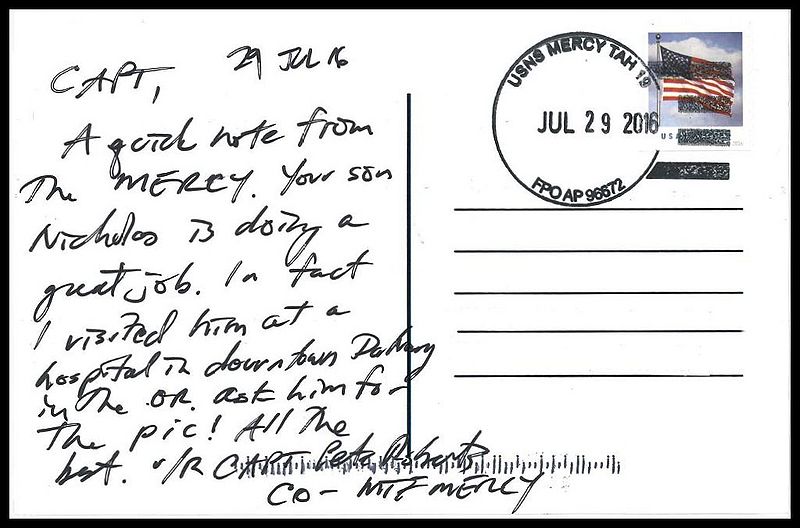 29 JUL 16
CAPT,
A quick note from
The MERCY. Your son
Nicholas is doing a
great job. In fact
I visited him at a
hospital in downtown
in the OR. ask him for
The pic! All The
best. v/R CAPT Pete Roberts
CO - MTF MERCY
USNS MERCY TAH 19
JUL 29 2016
FPO AP 96672